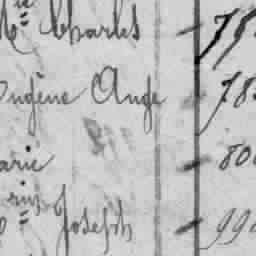 Charles - 75
Eugène Ange - 78
arie - 80
Joseph - 99